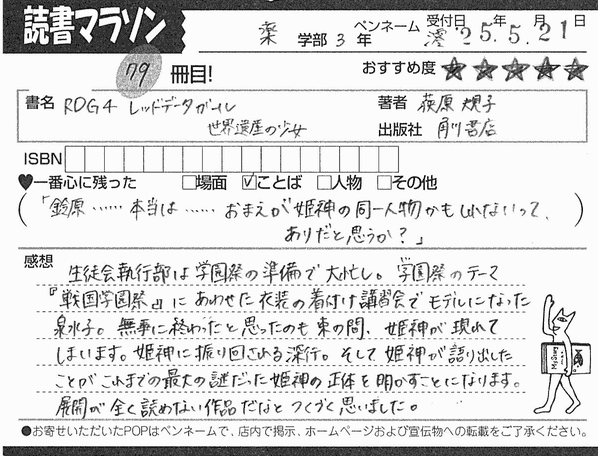 読書マラソン
薬 学部 3 年 ペンネーム 澪 受付日 '25年 5月 21日
79 冊目! おすすめ度 ★★★★★
書名 RDG4 レッドデータガール
世界遺産の少女
著者 荻原 規子
出版社 角川書店
ISBN
♥一番心に残った □場面 ☑ことば □人物 □その他
(「鈴原……本当は……おまえが姫神の同一人物かもしれないって、
ありだと思うか?」)
感想 生徒会執行部は学園祭の準備で大忙し。学園祭のテーマ
『戦国学園祭』にあわせた衣装の着付け講習会でモデルになった
泉水子。無事に終わったと思ったのも束の間、姫神が現れて
しまいます。姫神に振り回される深行。そして姫神が語り出した
ことがこれまでの最大の謎だった姫神の正体を明かすことになります。
展開が全く読めない作品だなとつくづく思いました。
●お寄せいただいたPOPはペンネームで、店内で掲示、ホームページおよび宣伝物への転載をご了承ください。